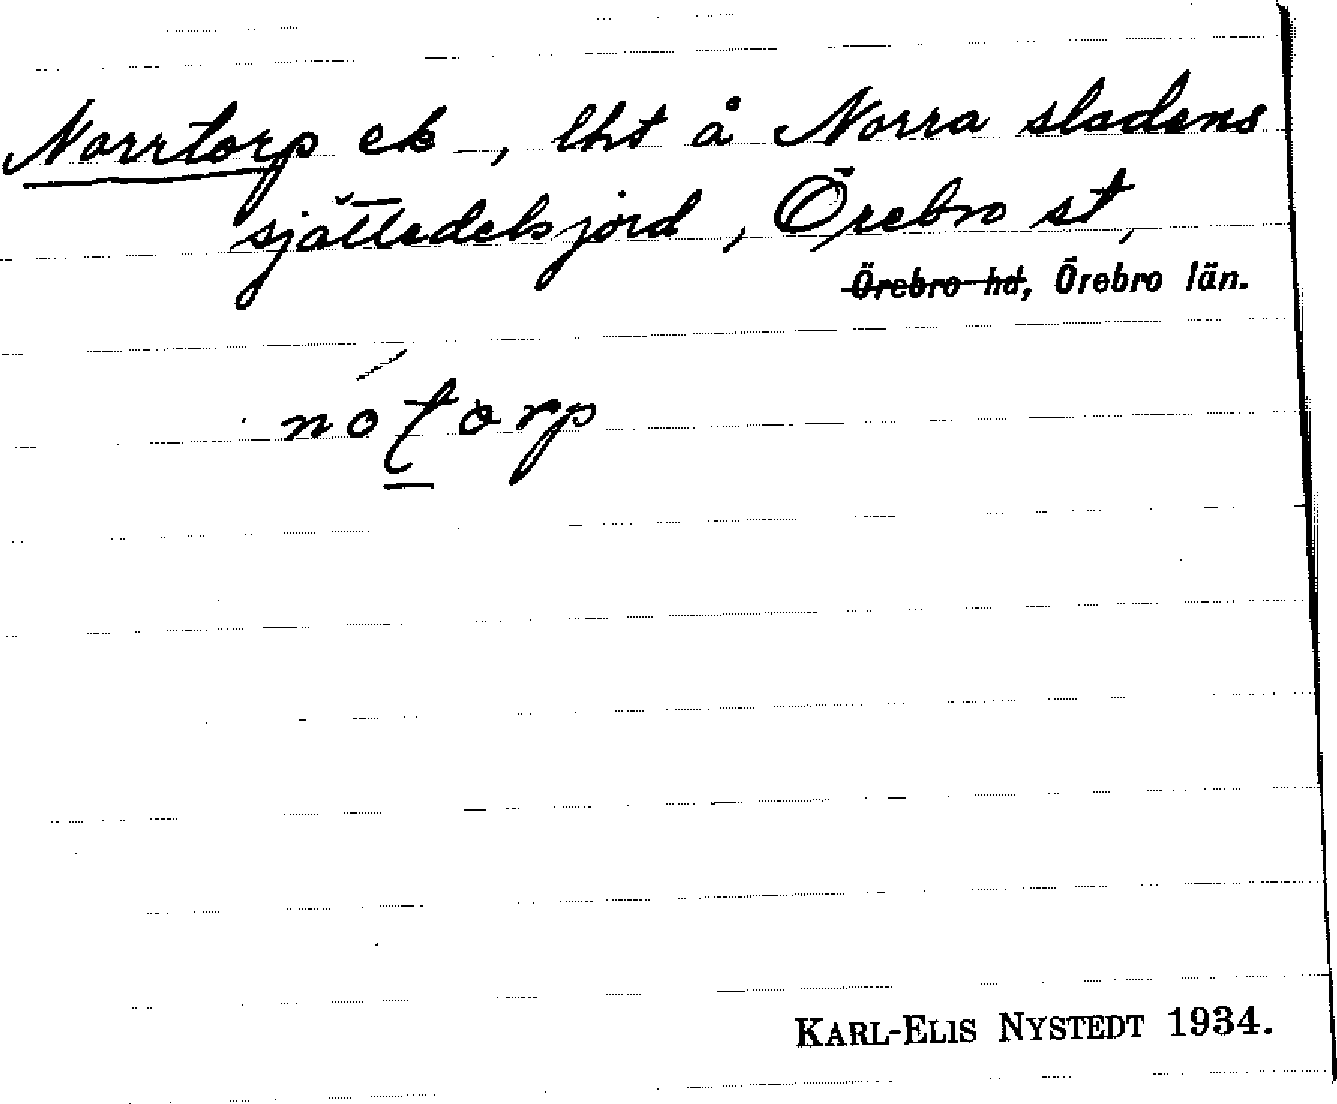 Norrtorp ek, lht å Norra stadens
sjättedelsjord, Örebro st,
Örebro hd, Örebro län.
nótorp
KARL-ELIS NYSTEDT 1934.